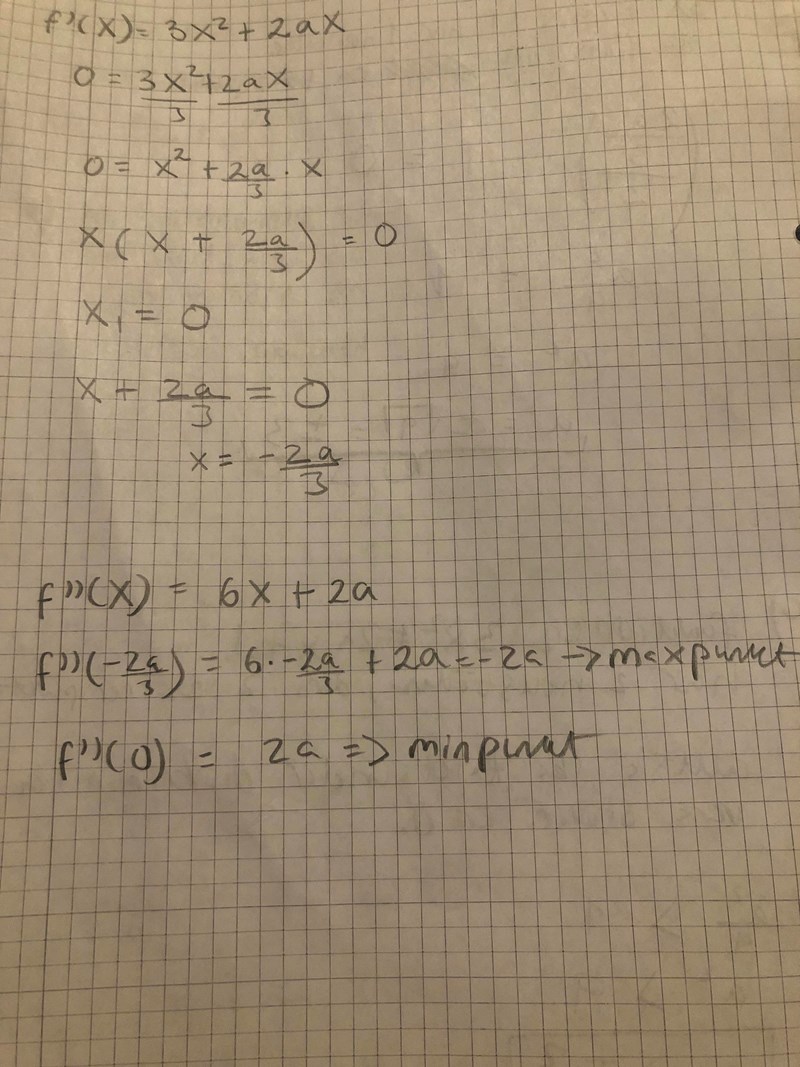 f'(x) = 3x² + 2ax
0 = 3x²/3 + 2ax/3
0 = x² + 2a/3 · x
x(x + 2a/3) = 0
x₁ = 0
x + 2a/3 = 0
x = -2a/3
f''(x) = 6x + 2a
f''(-2a/3) = 6·-2a/3 + 2a = -2a → maxpunkt
f''(0) = 2a => minpunkt